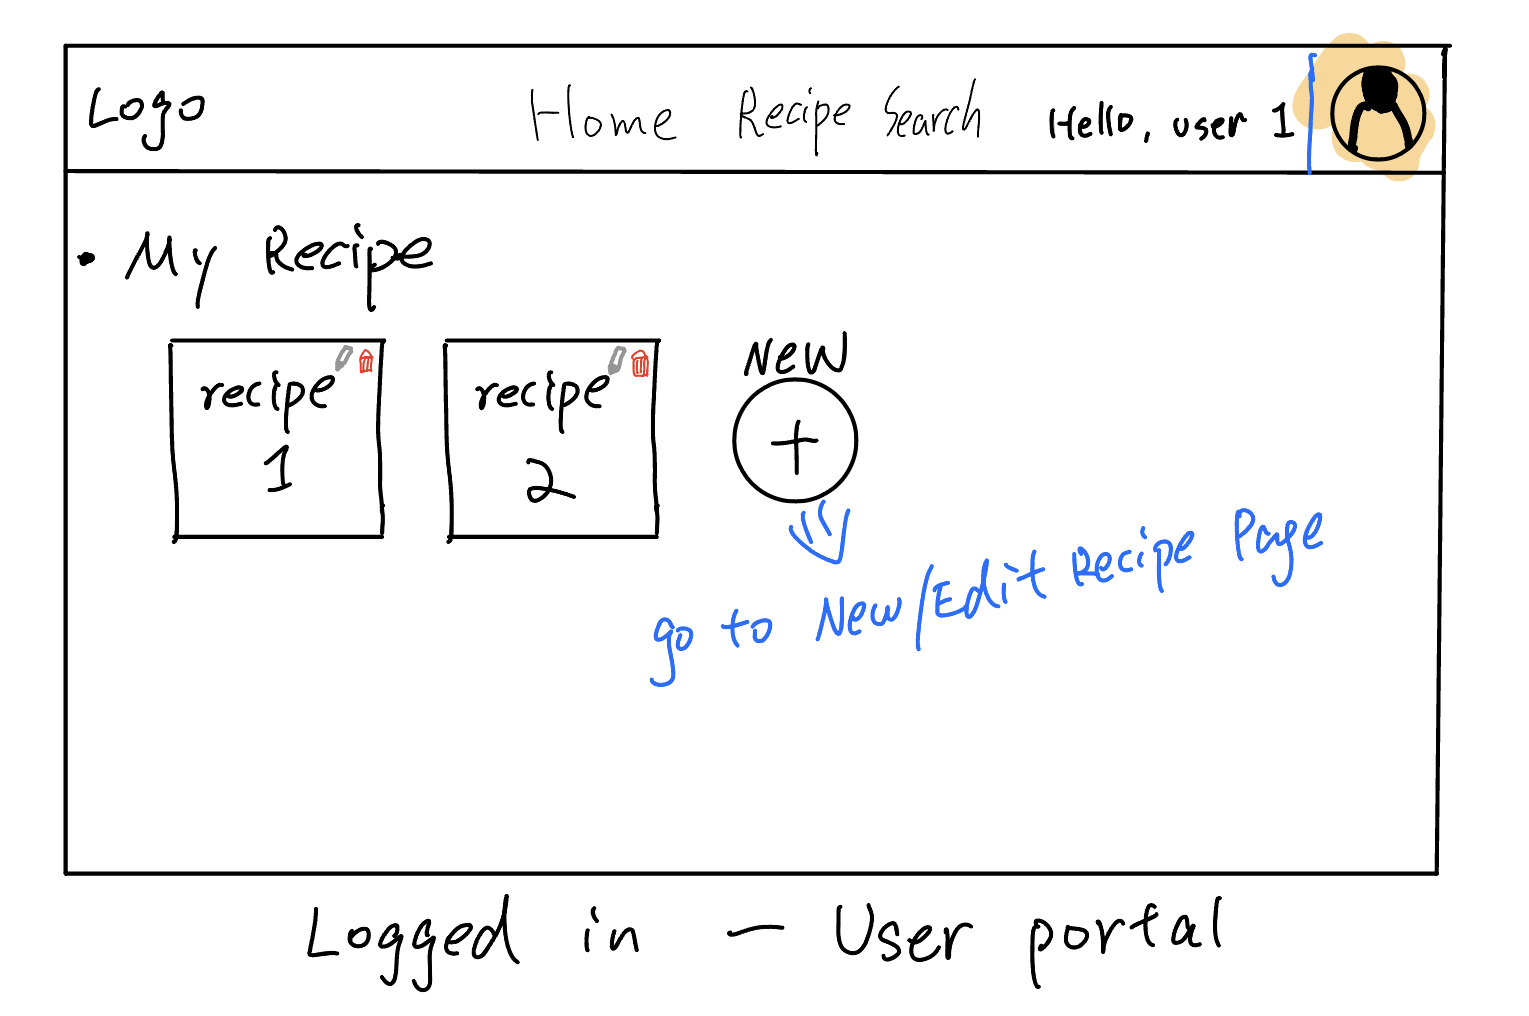 Logo Home Recipe Search Hello, user 1
• My Recipe
recipe 1
recipe 2
NEW
+
go to New/Edit Recipe Page
Logged in — User portal